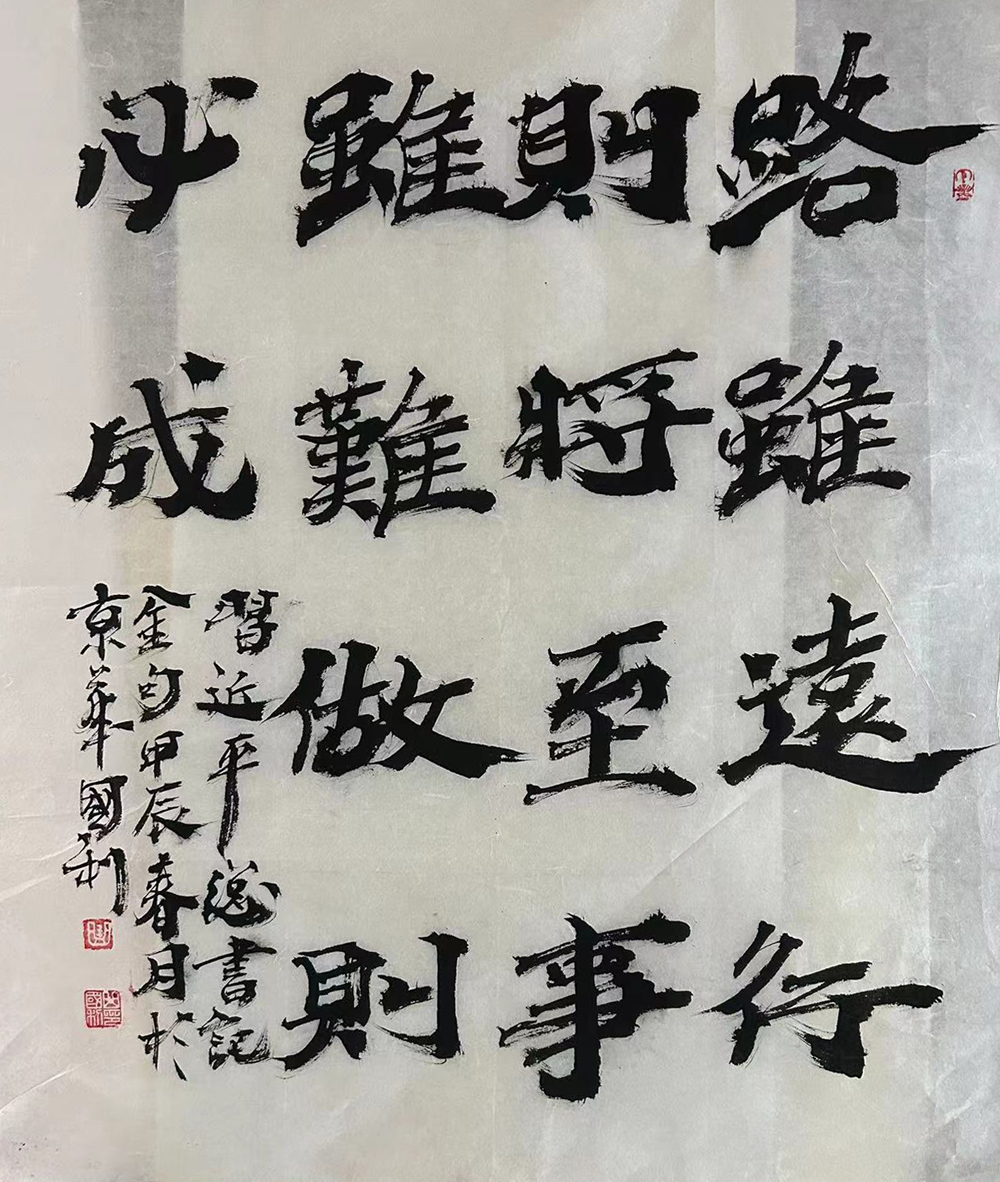 路雖遠行
則將至事
雖難做則
必成
習近平總書記
金句甲辰春月於
京華國利